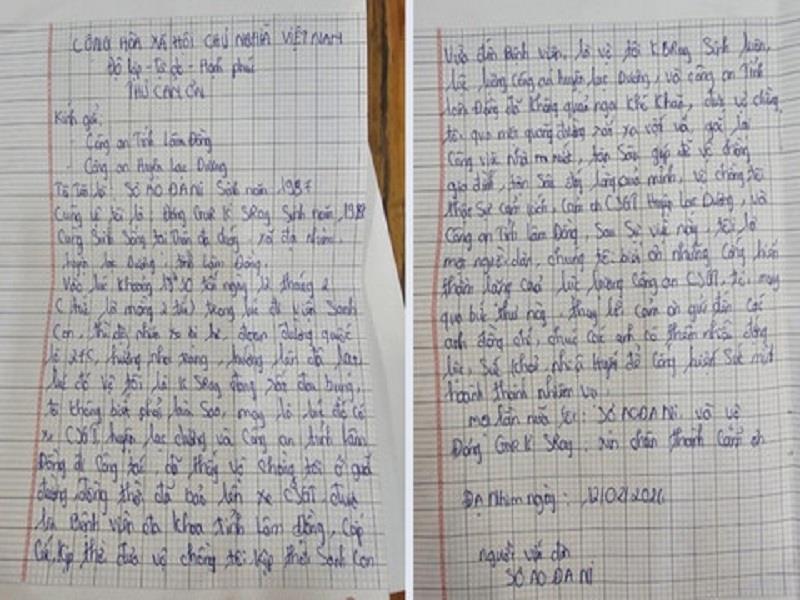 CỘNG HÒA XÃ HỘI CHỦ NGHĨA VIỆT NAM
Độ lập - Tự do - Hạnh phúc
THƯ CẢM ƠN
Kính gửi:
- Công an Tỉnh Lâm Đồng
- Công an Huyện Lạc Dương
Tôi tên là: SÔ AO ĐA NI Sinh năm 1987
Cùng vợ tôi là: Đóng Gur K SRay Sinh năm, 1988
Cùng Sinh Sống tại Thôn đạ cháy, xã đạ nhim,
huyện lạc Dương, tỉnh Lâm Đồng.
Vào lúc khoảng 19h30 tối ngày 12 tháng 2
(tức là mồng 2 tết) trong lúc đi viện Sanh
Con, thì xe bị hư, đoạn đường quốc
lộ 27C, hướng nha trang, hướng lên đà lạt
lúc đó vợ tôi là K SRay đang đau bụng,
tôi không biết phải làm Sao, may là lúc đó có
xe CSGT huyện lạc dương và Công an tỉnh lâm
Đồng đi Công tác, đã thấy vợ chồng tôi ở
đường đồng thời đã bảo lên xe CSGT, đưa
lên Bệnh viện đa khoa tỉnh Lâm Đồng, Cấp
Cứu, kịp thời đưa vợ chồng tôi kịp thời Sanh Con
Vừa đến Bệnh viện, là vợ tôi K BRay Sinh luôn,
lực lượng Công an huyện Lạc Dương, và công an Tỉnh
Lâm Đồng đã không quản ngại khó khăn, đưa vợ chồng
tôi qua một quãng đường rất xa vất vả, gác lại
Công việc nhà mình, giúp đỡ vợ chồng
gia đình, lòng của mình, vợ chồng tôi
thật Sự cảm kích, cảm ơn CSGT Huyện Lạc Dương, và
Công an Tỉnh Lâm Đồng. Sau Sự việc này, tôi là
một người dân, chúng tôi biết ơn những Cống hiến
thầm lặng của lực lượng Công an CSGT, tôi
qua bức thư này, thay lời cảm ơn gửi đến các
anh đồng chí, chúc các anh có thêm nhiều động
lực, Sức khỏe, nhiệt huyết để Cống hiến Sức mình
hoành thành nhiệm vụ.
một lần nữa SÔ AO ĐA NI và vợ
Đóng Gur K SRay, xin chân thành Cảm ơn
Đạ Nhim ngày: 12/02/2021
người viết đơn
SÔ AO ĐA NI